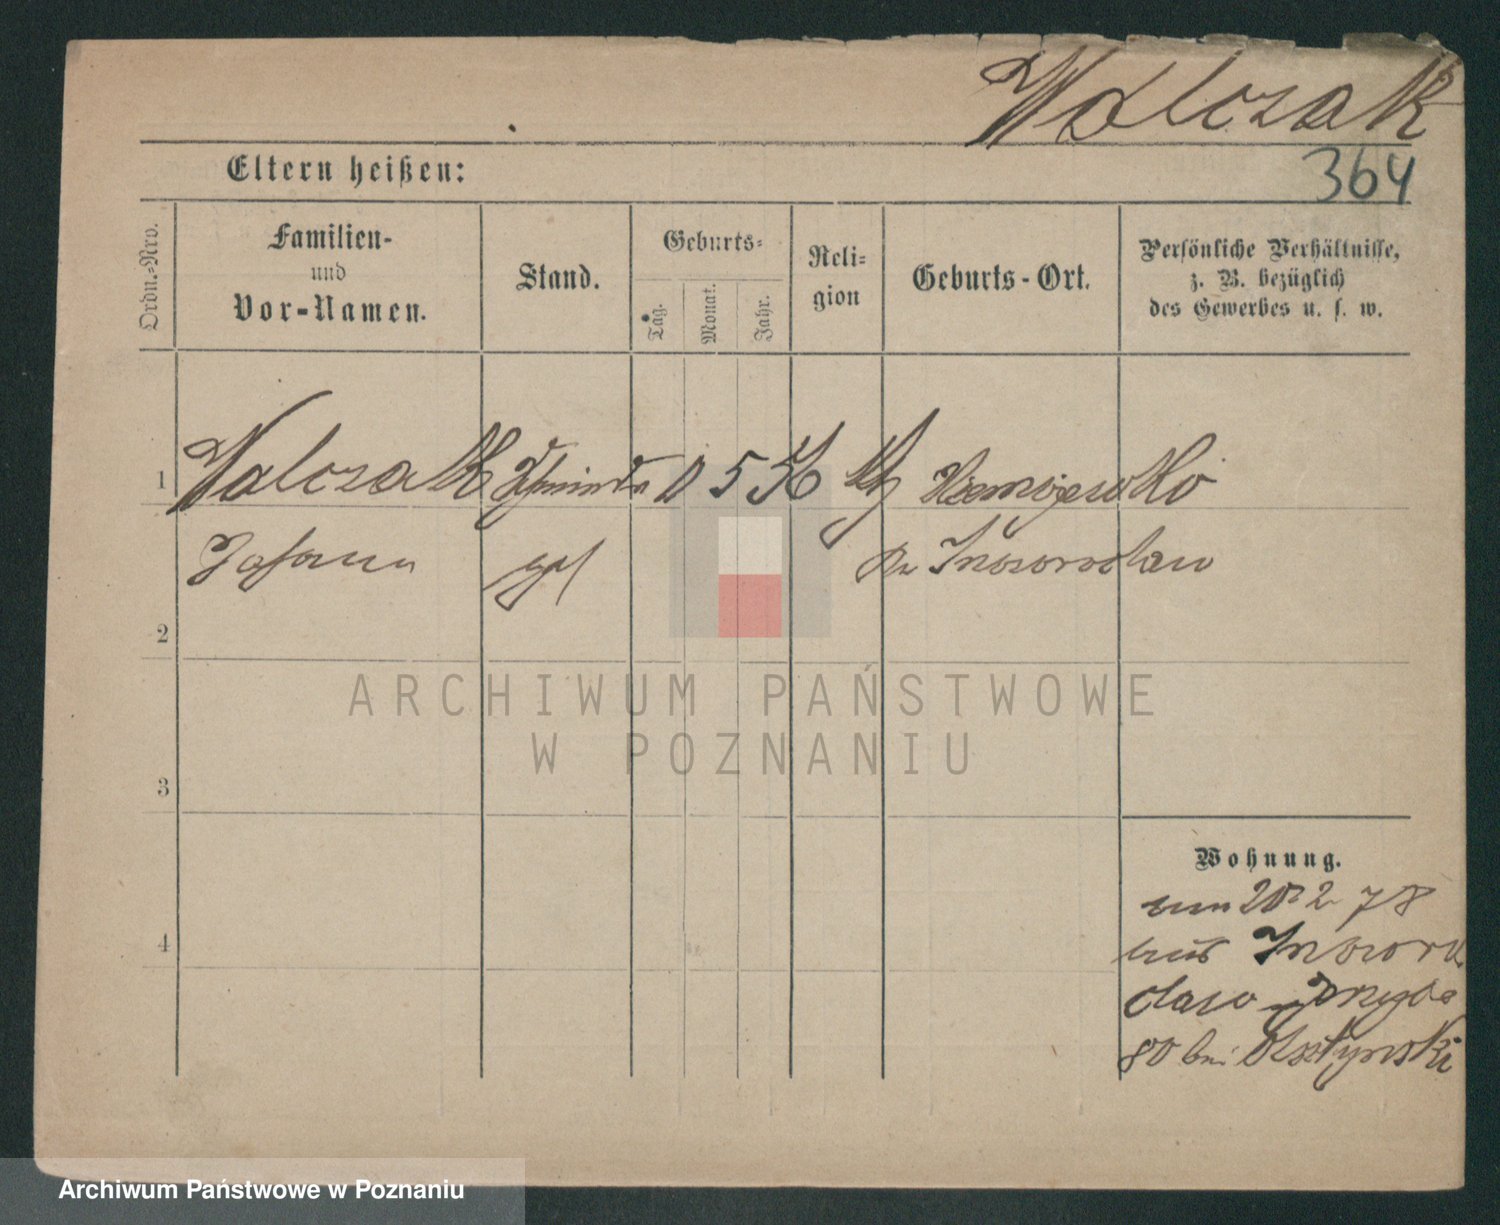 Walczak
364
Eltern heißen:
Ordn.-Nro.
Familien-
und
Vor-Namen.
Stand.
Geburts-
Tag.
Monat.
Jahr.
Reli-
gion
Geburts-Ort.
Persönliche Verhältnisse,
z. B. bezüglich
des Gewerbes u. s. w.
1 Walczak 5 56
Johann Inowroclaw
2
3
4
Wohnung.
20 2 78
aus Inowro
claw
80 bei Olsztynski
ARCHIWUM PAŃSTWOWE
W POZNANIU
Archiwum Państwowe w Poznaniu